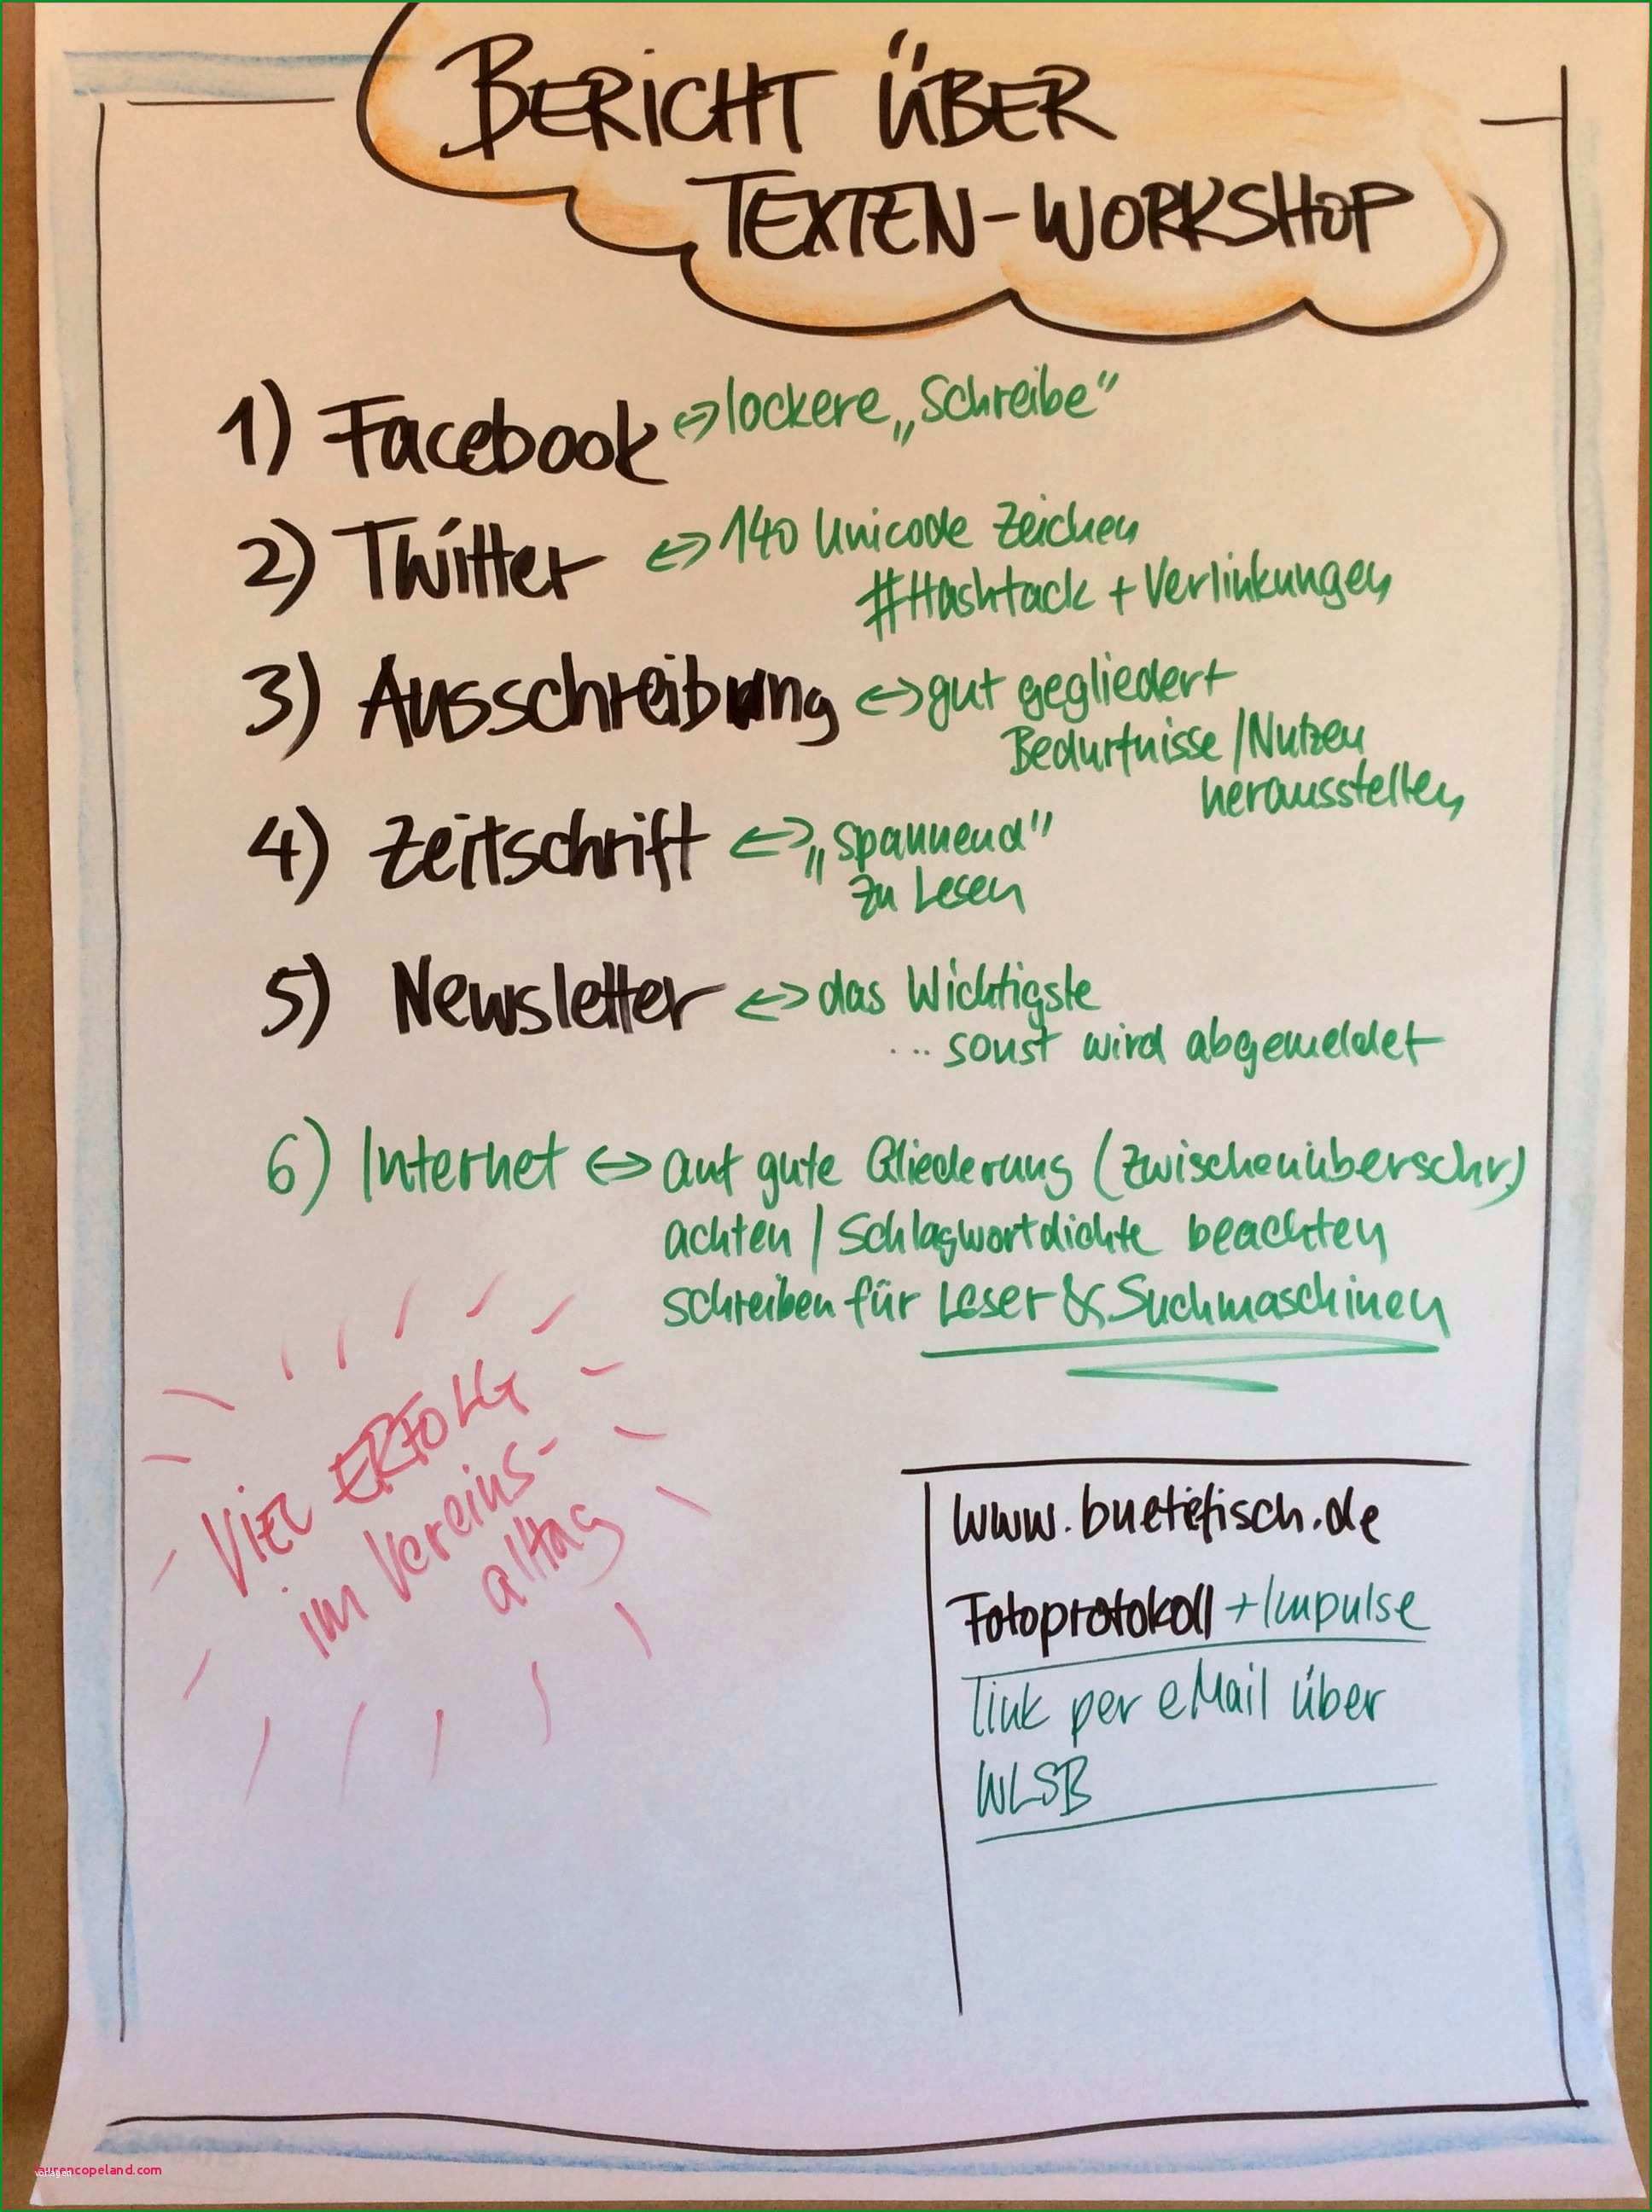 BERICHT ÜBER
TEXTEN-WORKSHOP
1) Facebook ⇔ lockere „Schreibe"
2) Twitter ⇔ 140 Unicode Zeichen
#Hashtack + Verlinkungen
3) Ausschreibung ⇔ gut gegliedert
Bedürfnisse / Nutzen
herausstellen
4) Zeitschrift ⇔ „spannend"
zu Lesen
5) Newsletter ⇔ das Wichtigste
... sonst wird abgemeldet
6) Internet ⇔ auf gute Gliederung (Zwischenüberschr.)
achten / Schlagwortdichte beachten
schreiben für Leser & Suchmaschinen
VIEL ERFOLG
im Vereins-
alltag
www.buetefisch.de
Fotoprotokoll + Impulse
Link per eMail über
WLSB
laurencopeland.com